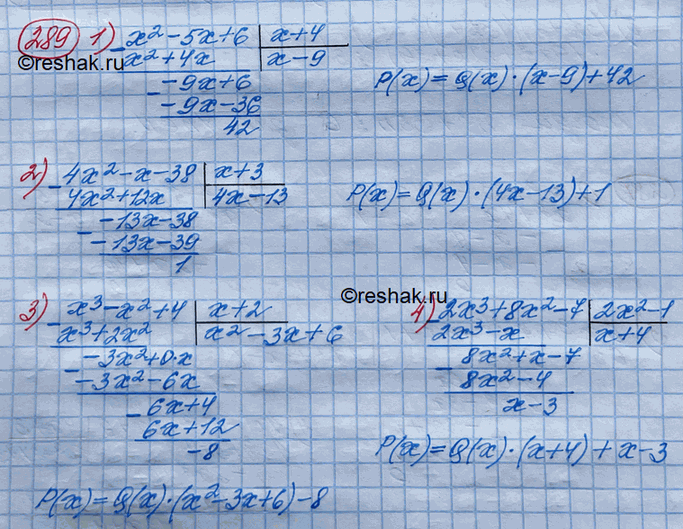 289 1) - x² - 5x + 6 | x + 4
x² + 4x | x - 9
©reshak.ru
- -9x + 6
-9x - 36
42
P(x) = Q(x) · (x - 9) + 42
2) - 4x² - x - 38 | x + 3
4x² + 12x | 4x - 13
- -13x - 38
-13x - 39
1
P(x) = Q(x) · (4x - 13) + 1
3) - x³ - x² + 4 | x + 2
x³ + 2x² | x² - 3x + 6
- -3x² + 0·x
-3x² - 6x
- 6x + 4
6x + 12
-8
P(x) = Q(x) · (x² - 3x + 6) - 8
©reshak.ru
4) - 2x³ + 8x² - 7 | 2x² - 1
2x³ - x | x + 4
- 8x² + x - 7
8x² - 4
x - 3
P(x) = Q(x) · (x + 4) + x - 3